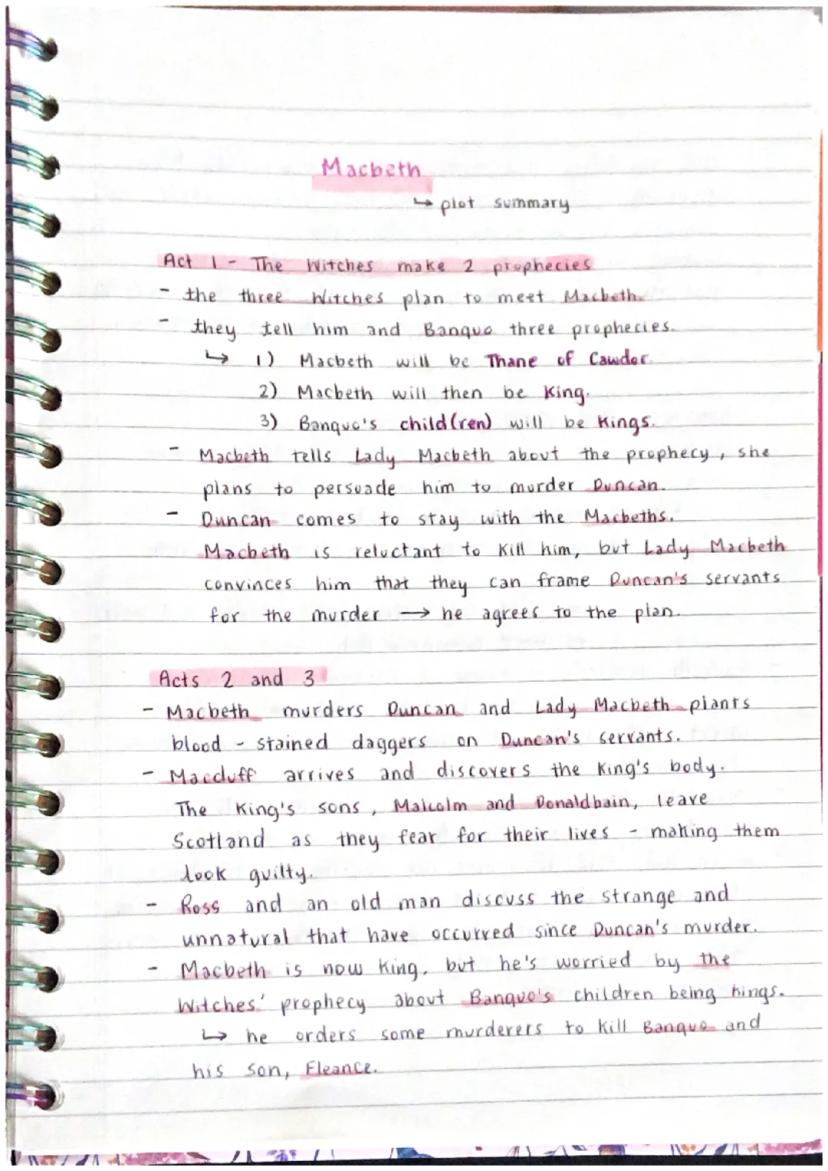 Macbeth
↳ plot summary
Act 1 - The Witches make 2 prophecies
- the three Witches plan to meet Macbeth.
- they tell him and Banquo three prophecies.
↳ 1) Macbeth will be Thane of Cawdor.
2) Macbeth will then be King.
3) Banquo's child(ren) will be Kings.
- Macbeth tells Lady Macbeth about the prophecy, she
plans to persuade him to murder Duncan.
- Duncan comes to stay with the Macbeths.
Macbeth is reluctant to kill him, but Lady Macbeth
convinces him that they can frame Duncan's servants
for the murder → he agrees to the plan.
Acts 2 and 3
- Macbeth murders Duncan and Lady Macbeth plants
blood-stained daggers on Duncan's servants.
- Macduff arrives and discovers the King's body.
The King's sons, Malcolm and Donaldbain, leave
Scotland as they fear for their lives - making them
look guilty.
- Ross and an old man discuss the strange and
unnatural that have occurred since Duncan's murder.
- Macbeth is now King, but he's worried by the
Witches' prophecy about Banquo's children being kings.
↳ he orders some murderers to kill Banquo and
his son, Fleance.